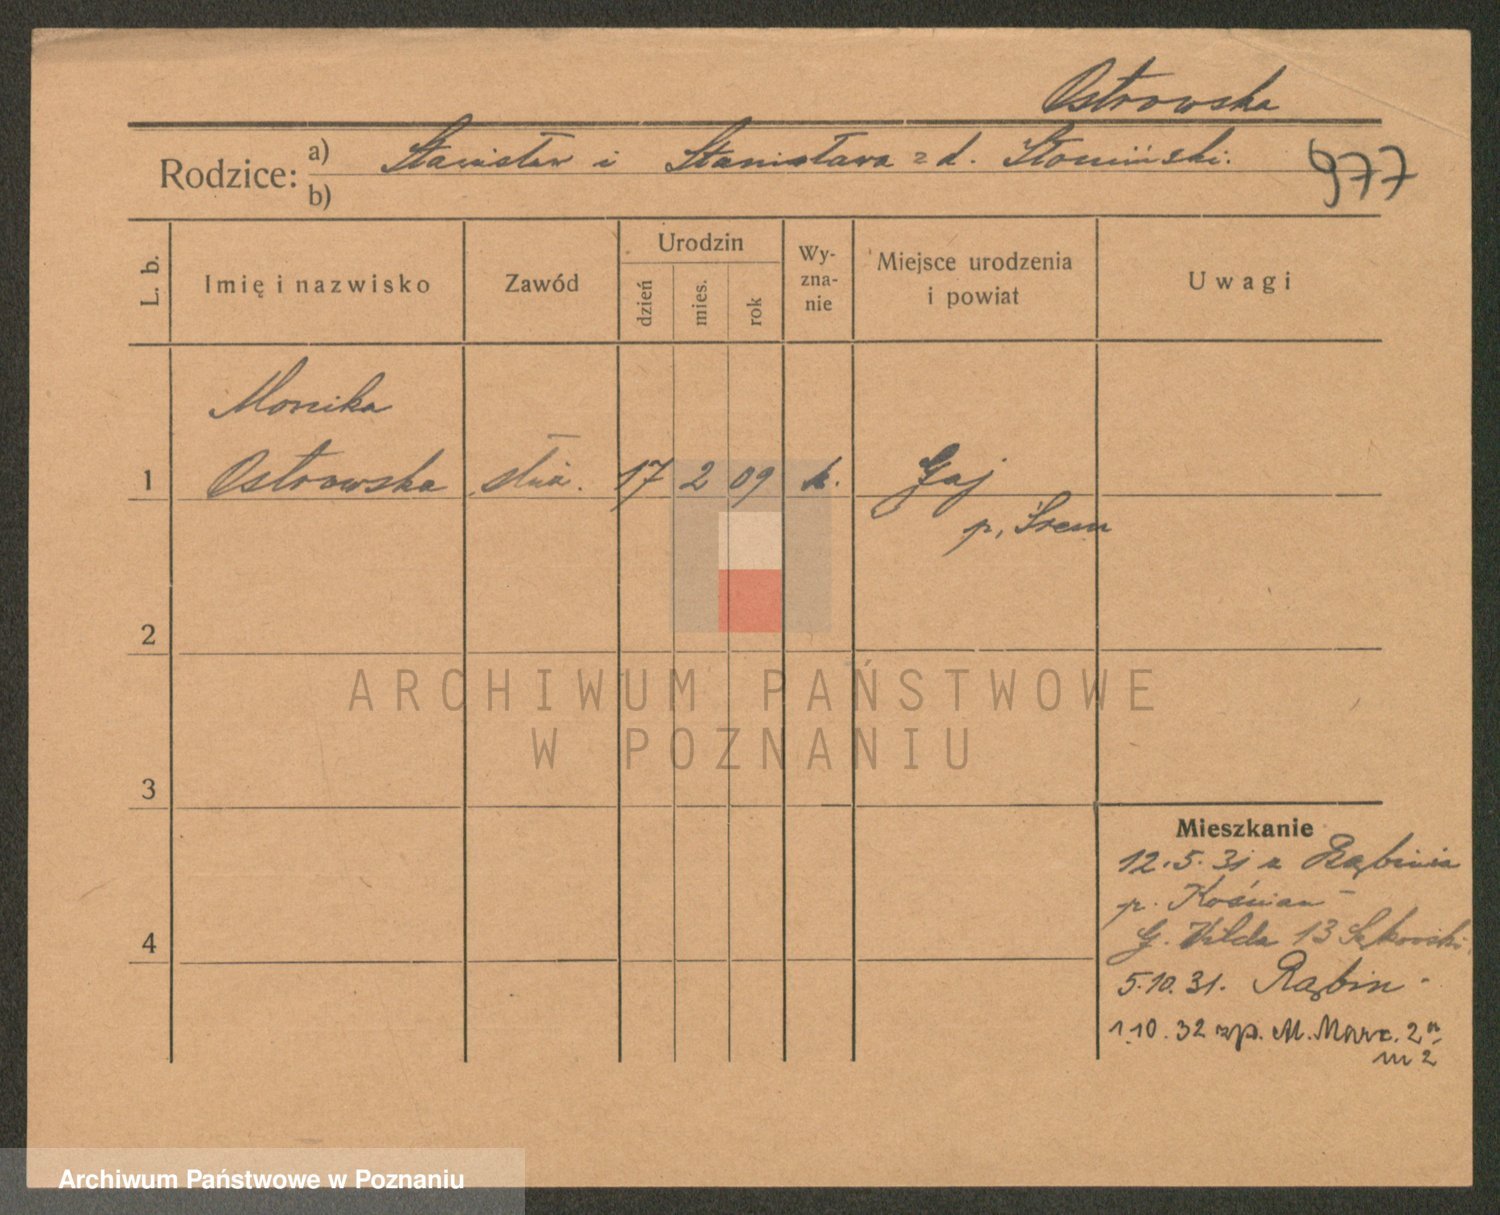 Ostrowska
Rodzice: a) Stanisław i Stanisława z d. Słomiński.
b)
977
L. b.
Imię i nazwisko
Zawód
Urodzin
dzień
mies.
rok
Wy-
zna-
nie
Miejsce urodzenia
i powiat
Uwagi
Monika
1 Ostrowska służ. 17 2 09 k. Gaj
p. Śrem
2
ARCHIWUM PAŃSTWOWE
W POZNANIU
3
Mieszkanie
12.5.31 z Rąbinia
p. Kościan
4
G. Wilda 13
5.10.31. Rąbin
1.10.32 zp. M. Marc. 2a
m 2
Archiwum Państwowe w Poznaniu